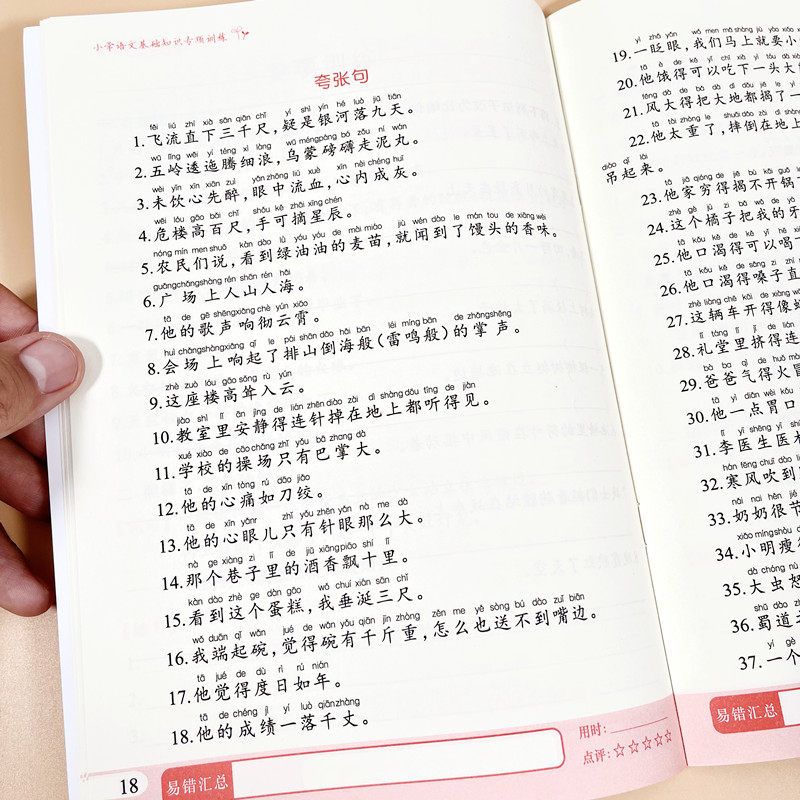 小学语文基础知识专项训练
夸张句
fēi liú zhí xià sān qiān chǐ yí shì yín hé luò jiǔ tiān
1.飞流直下三千尺，疑是银河落九天。
wǔ lǐng wēi yí téng xì làng wū méng páng bó zǒu ní wán
2.五岭逶迤腾细浪，乌蒙磅礴走泥丸。
wèi yǐn xīn xiān zuì yǎn zhōng liú xuè xīn nèi chéng huī
3.未饮心先醉，眼中流血，心内成灰。
wēi lóu gāo bǎi chǐ shǒu kě zhāi xīng chén
4.危楼高百尺，手可摘星辰。
nóng mín men shuō kàn dào lǜ yóu yóu de mài miáo jiù wén dào le mán tou de xiāng wèi
5.农民们说，看到绿油油的麦苗，就闻到了馒头的香味。
guǎng chǎng shàng rén shān rén hǎi
6.广场上人山人海。
tā de gē shēng xiǎng chè yún xiāo
7.他的歌声响彻云霄。
huì chǎng shàng xiǎng qǐ le pái shān dǎo hǎi bān léi míng bān de zhǎng shēng
8.会场上响起了排山倒海般(雷鸣般)的掌声。
zhè zuò lóu gāo sǒng rù yún
9.这座楼高耸入云。
jiào shì lǐ ān jìng de lián zhēn diào zài dì shàng dōu tīng de jiàn
10.教室里安静得连针掉在地上都听得见。
xué xiào de cāo chǎng zhǐ yǒu bā zhang dà
11.学校的操场只有巴掌大。
tā de xīn tòng rú dāo jiǎo
12.他的心痛如刀绞。
tā de xīn yǎnr zhǐ yǒu zhēn yǎn nà me dà
13.他的心眼儿只有针眼那么大。
nà ge xiàng zi lǐ de jiǔ xiāng piāo shí lǐ
14.那个巷子里的酒香飘十里。
kàn dào zhè ge dàn gāo wǒ chuí xián sān chǐ
15.看到这个蛋糕，我垂涎三尺。
wǒ duān qǐ wǎn jué de wǎn yǒu qiān jīn zhòng zěn me yě sòng bú dào zuǐ biān
16.我端起碗，觉得碗有千斤重，怎么也送不到嘴边。
tā jué de dù rì rú nián
17.他觉得度日如年。
tā de chéng jì yí luò qiān zhàng
18.他的成绩一落千丈。
用时：
点评：☆☆☆☆☆
18 易错汇总
yì zhǎ yǎn wǒ men mǎ shàng jiù yào xiǎo
19.一眨眼，我们马上就要小
tā è de kě yǐ chī xià yì tóu dà
20.他饿得可以吃下一头大
fēng dà de bǎ dà dì dōu jiē le yì
21.风大得把大地都揭了一
tā tài zhòng le shuāi dǎo zài dì shàng
22.他太重了，摔倒在地上
diào qǐ lái
吊起来。
tā jiā qióng de jiē bù kāi guō
23.他家穷得揭不开锅
zhè ge jú zi bǎ wǒ de yá
24.这个橘子把我的牙
tā kǒu kě de kě yǐ hē
25.他口渴得可以喝
tā kǒu kě de sǎng zi zhí
26.他口渴得嗓子直
zhè liàng chē kāi de xiàng
27.这辆车开得像
lǐ táng lǐ jǐ de lián
28.礼堂里挤得连
bà ba qì de huǒ mào
29.爸爸气得火冒
tā yì diǎn wèi kǒu
30.他一点胃口
lǐ yī shēng yī shù
31.李医生医术
hán fēng chuī dào
32.寒风吹到
nǎi nai hěn jié
33.奶奶很节
xiǎo míng shòu de
34.小明瘦得
dà chóng nù
35.大虫怒
shǔ dào
36.蜀道
37.一个
易错汇总